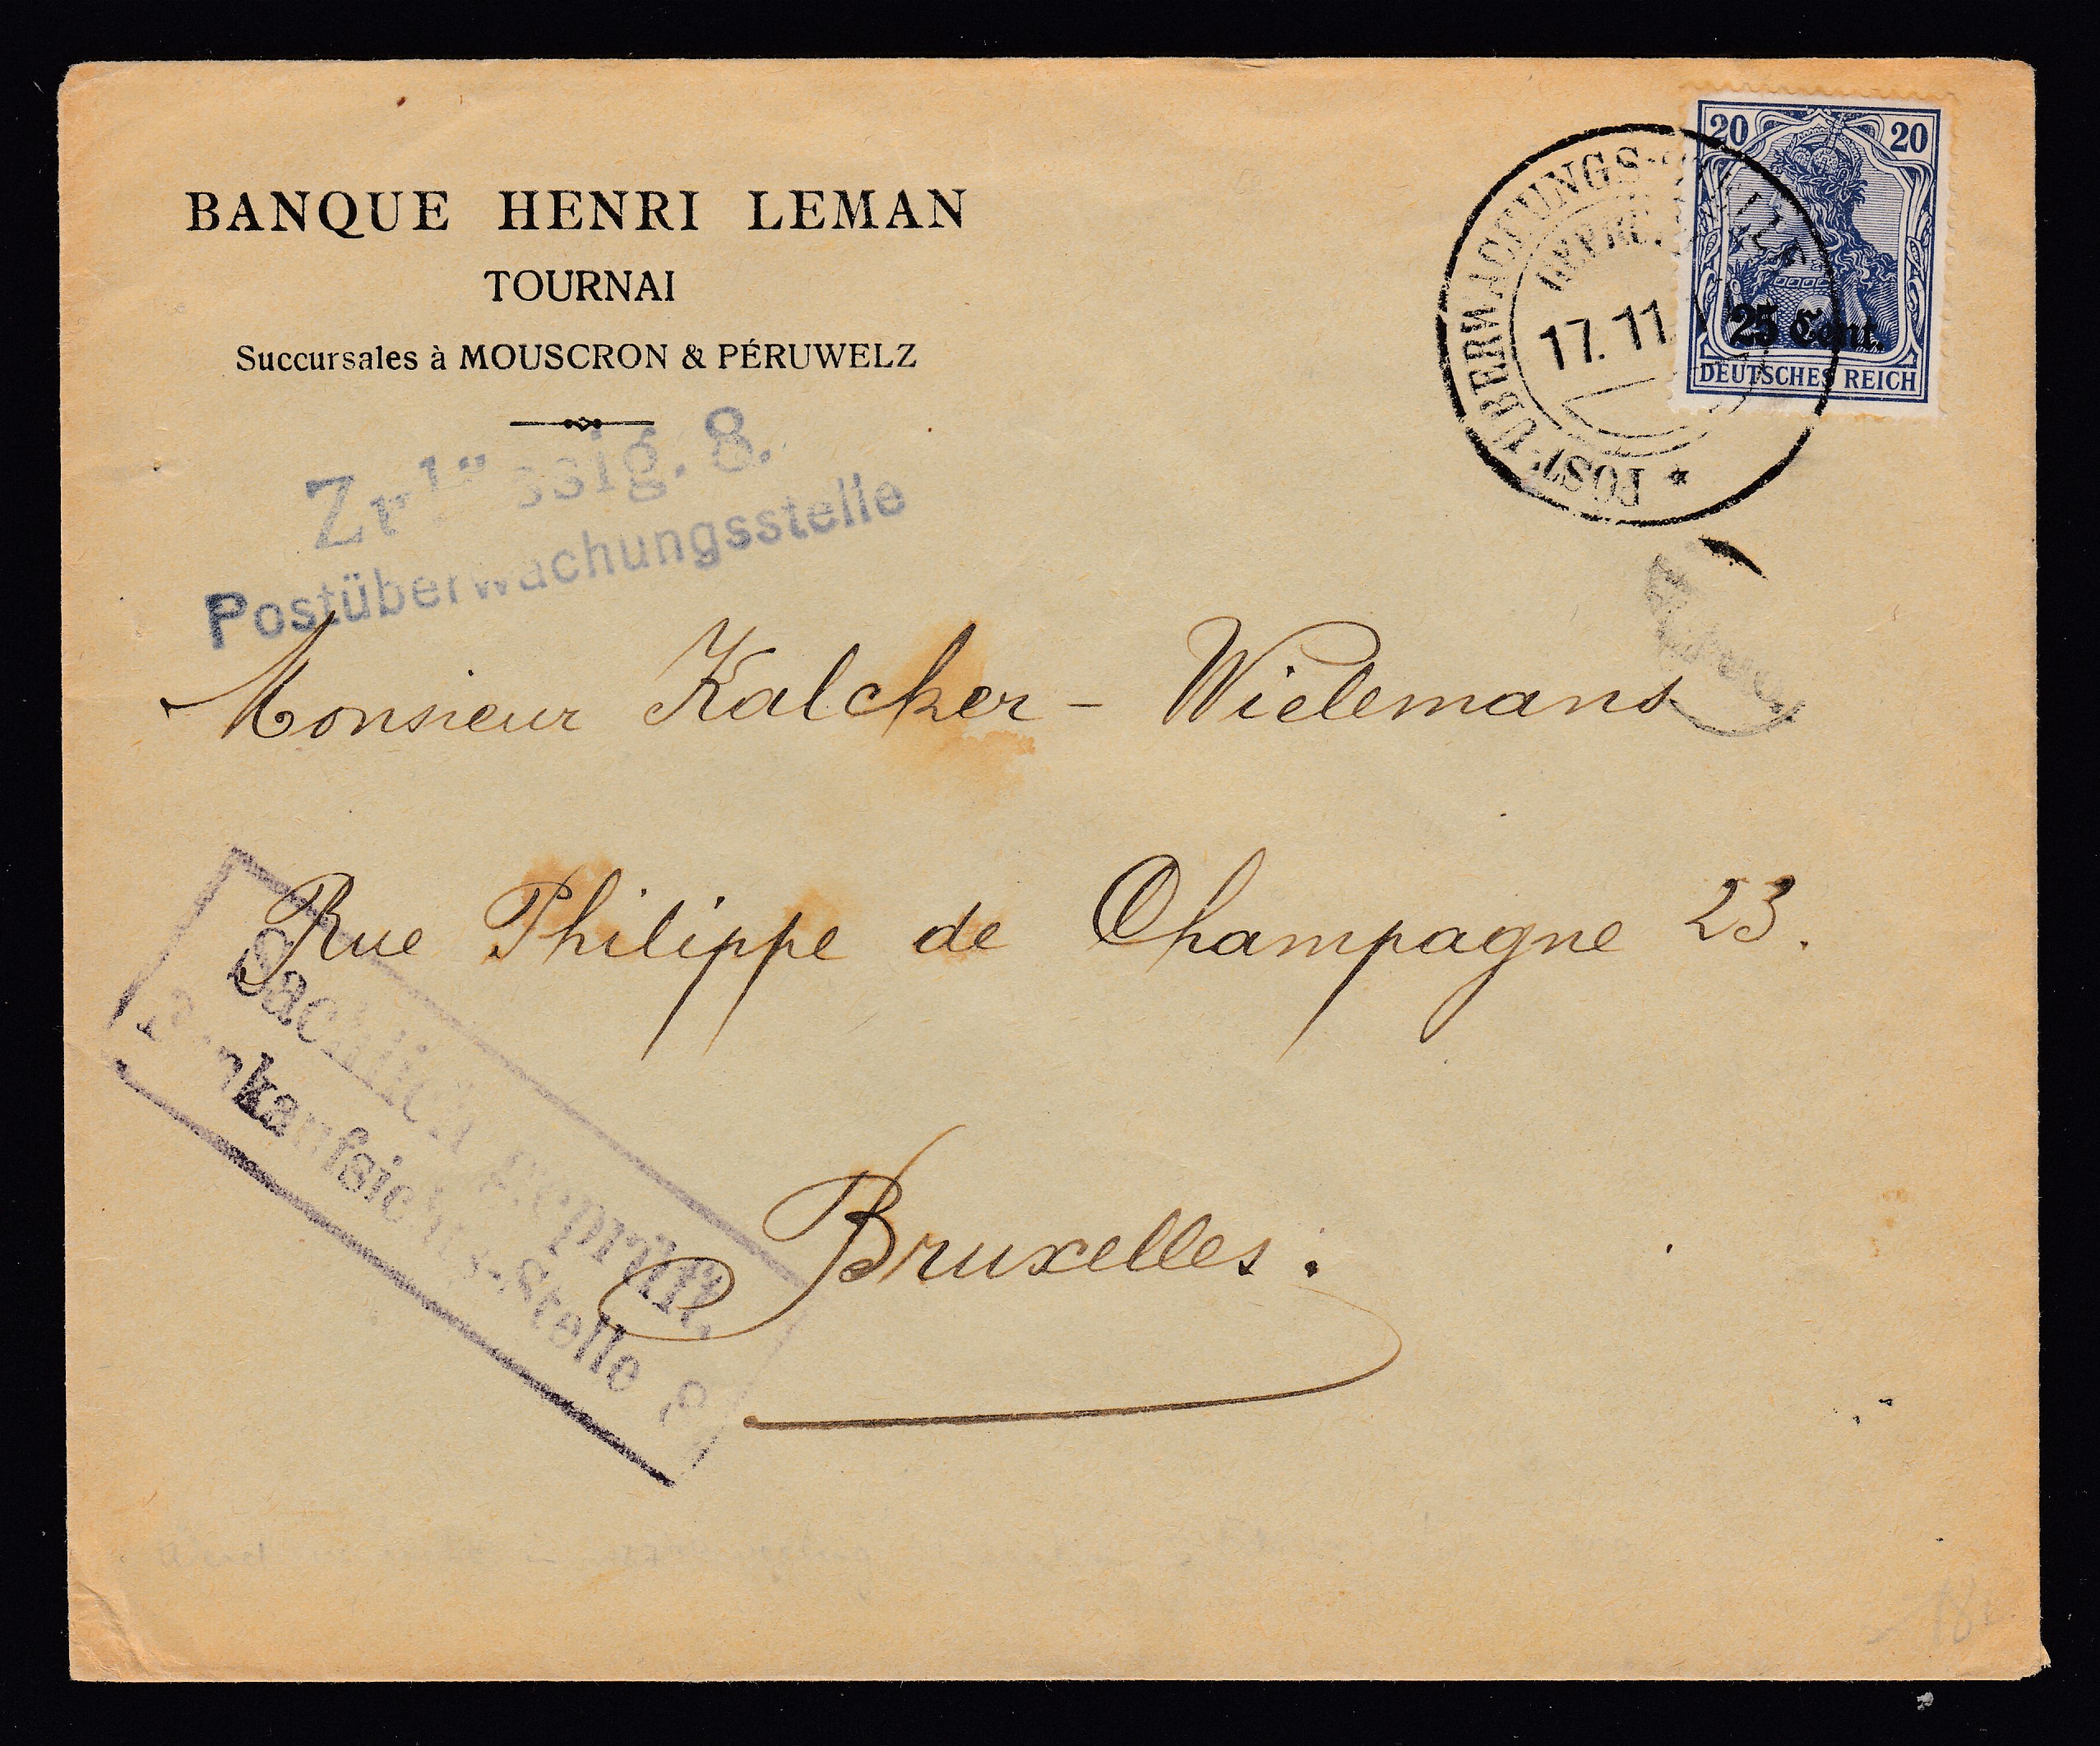 BANQUE HENRI LEMAN
TOURNAI
Succursales à MOUSCRON & PÉRUWELZ
20 20
25 Cent.
DEUTSCHES REICH
POST-ÜBERWACHUNGS-STELLE
17. 11
Zrlässig. 8.
Postüberwachungsstelle
Monsieur Kalcker - Wielemans
Rue Philippe de Champagne 23.
Bruxelles.
Sachlich geprüft.
Bankaufsichts-Stelle 8